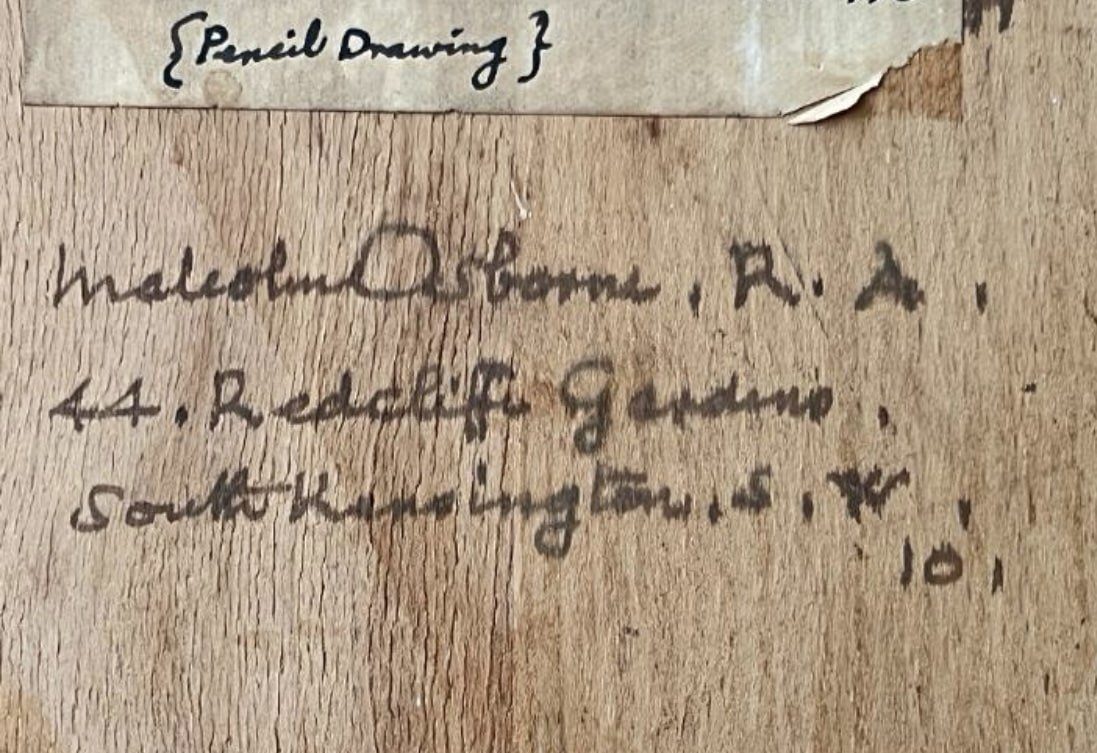 {Pencil Drawing}
Malcolm Osborne, R. A.
44. Redcliffe Gardens.
South Kensington. S. W.
10.